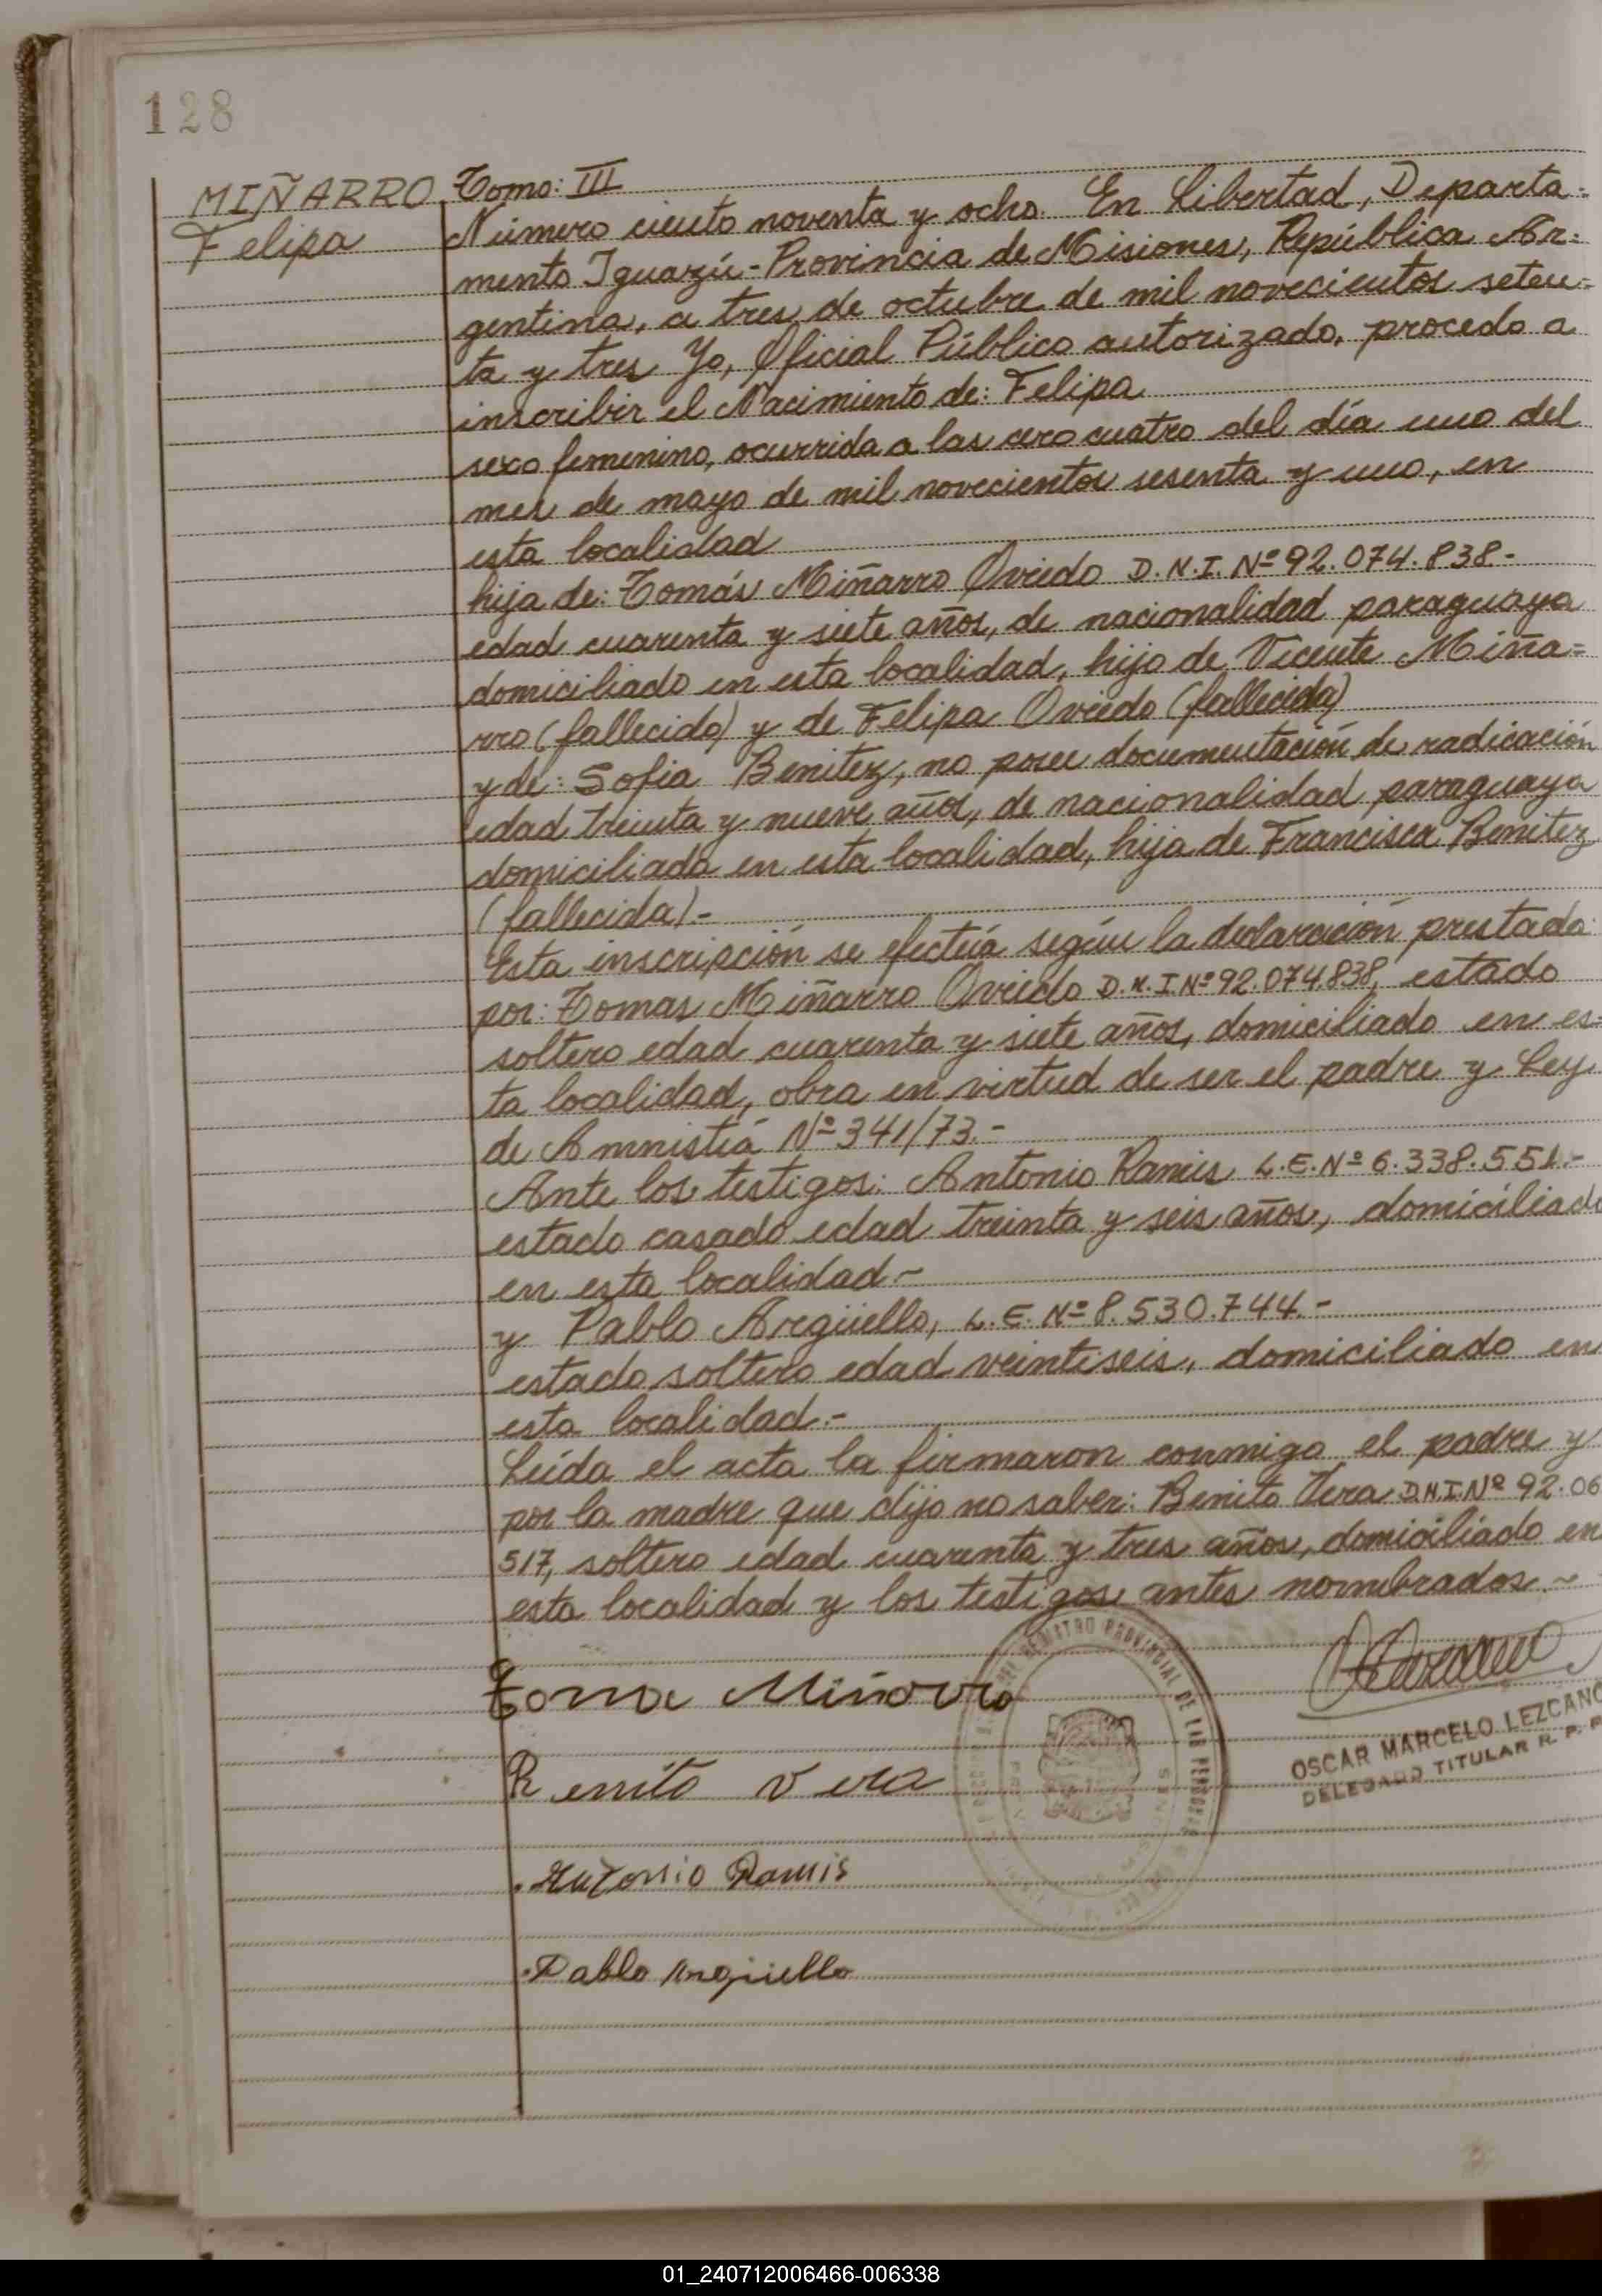 128
MIÑARRO
Felipa
Tomo: III
Número ciento noventa y ocho. En Libertad, Departa=
mento Iguazú - Provincia de Misiones, República Ar=
gentina, a tres de octubre de mil novecientos seten=
ta y tres Yo, Oficial Público autorizado, procedo a
inscribir el Nacimiento de: Felipa
sexo femenino, ocurrida a las cero cuatro del día uno del
mes de mayo de mil novecientos sesenta y uno, en
esta localidad
hija de: Tomás Miñarro Oviedo D.N.I. Nº 92.074.838.-
edad cuarenta y siete años, de nacionalidad paraguaya
domiciliado en esta localidad, hijo de Vicente Miña=
rro (fallecido) y de Felipa Oviedo (fallecida)
y de: Sofia Benitez, no posee documentación de radicación
edad treinta y nueve años, de nacionalidad paraguaya
domiciliada en esta localidad, hija de Francisca Benitez
(fallecida).-
Esta inscripción se efectúa según la declaración prestada
por: Tomas Miñarro Oviedo D.N.I. Nº 92.074.838, estado
soltero edad cuarenta y siete años, domiciliado en es=
ta localidad, obra en virtud de ser el padre y Ley
de Amnistía Nº 341/73.-
Ante los testigos: Antonio Ramis L.E. Nº 6.338.551.-
estado casado edad treinta y seis años, domiciliado
en esta localidad.-
y Pablo Argüello, L.E. Nº 8.530.744.-
estado soltero edad veintiseis, domiciliado en
esta localidad.-
Leída el acta la firmaron conmigo el padre y
por la madre que dijo no saber: Benito Vera D.N.I. Nº 92.06
517, soltero edad cuarenta y tres años, domiciliado en
esta localidad y los testigos antes nombrados.-
Toma Miñarro
OSCAR MARCELO LEZCANO
DELEGADO TITULAR R. P. P
Benito Vera
REGISTRO PROVINCIAL DE LAS PERSONAS
Antonio Ramis
Pablo Argüello
01_240712006466-006338